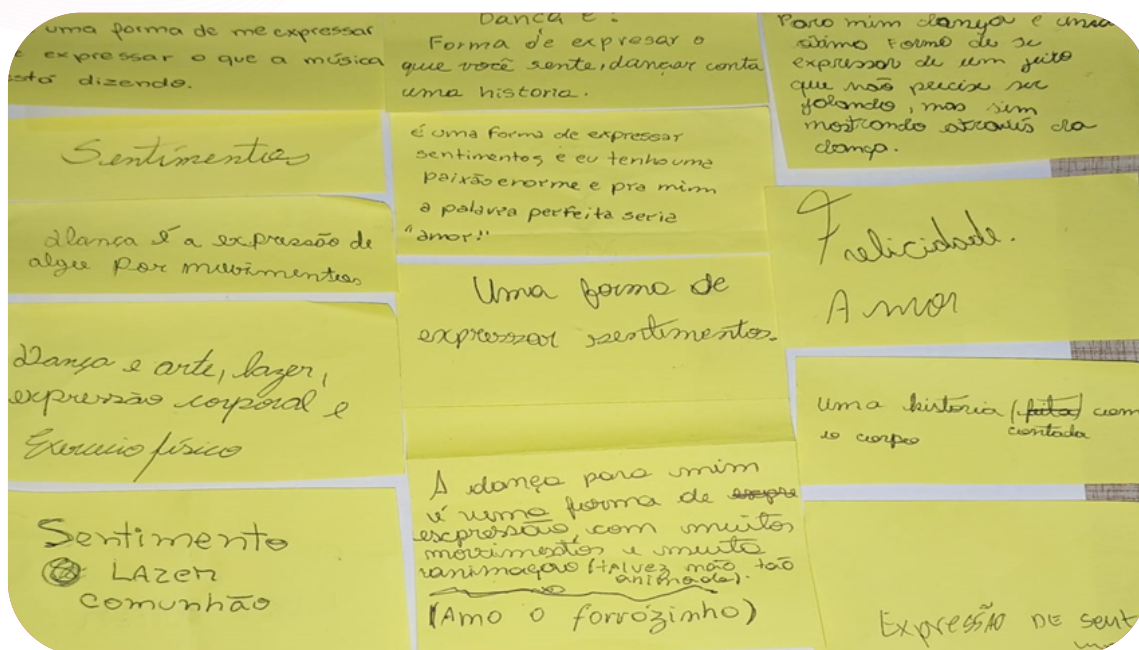 uma forma de me expressar
e expressar o que a música
está dizendo.
Sentimentos
Dança é a expressão de
algo por movimentos
Dança e arte, lazer,
expressão corporal e
Exercicio físico
Sentimento
LAzer
comunhão
Danca é:
Forma de expresar o
que você sente, dançar conta
uma historia.
é uma forma de expressar
sentimentos e eu tenho uma
paixão enorme e pra mim
a palavra perfeita seria
"amor!"
Uma forma de
expressar sentimentos.
A dança para mim
é uma forma de expre
expressão, com muitos
movimentos e muita
animação (tAlvez não tão
animada).
(Amo o forrózinho)
Para mim dança é uma
forma de se
expressar de um jeito
que não precise ser
falando, mas sim
mostrando através da
dança.
Felicidade.
Amor
uma história (feita) com
contada
o corpo
Expressão de sent